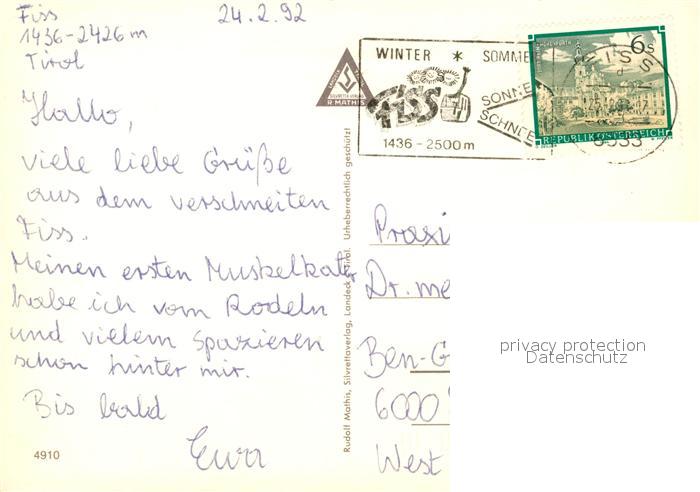 Fiss
1436-2426 m
Tirol
24.2.92
Hallo,
viele liebe Grüße
aus dem verschneiten
Fiss.
Meinen ersten Muskelkater
habe ich vom Rodeln
und vielem Spazieren
schon hinter mir.
Bis bald
4910
SILVRETTA VERLAG
R. MATHIS
Rudolf Mathis, Silvrettaverlag, Landeck Tirol. Urheberrechtlich geschützt!
WINTER * SOMME
FISS
SONNE
SCHNEE
1436-2500 m
6 S
REPUBLIK ÖSTERREICH
FISS
6533
Praxi
Dr. me
Ben-G
6000
West
privacy protection
Datenschutz